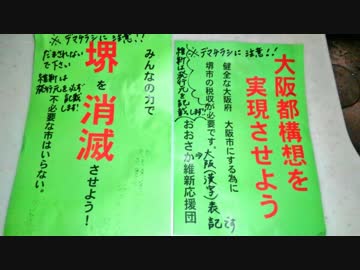 ※デマチラシに注意!!
だまされない
で下さい
維新は
発行元を必ず
記載
します!
みんなの力で
堺を消滅させよう!
不必要な市はいらない。
※デマチラシに注意!!
大阪都構想を
実現させよう
健全な大阪府 大阪市にする為に
堺市の税収が必要です。
おおさか維新応援団
維新は発行元を必ず
記載
します!
大阪(漢字)表記です